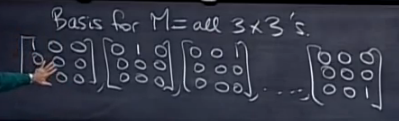 Basis for M = all 3x3's.
[1 0 0] [0 1 0] [0 0 1] [0 0 0]
[0 0] [0 0 0] [0 0 0] [0 0 0]
[0 0] , [0 0 0] , [0 0 0] , . . . . , [0 0 1]